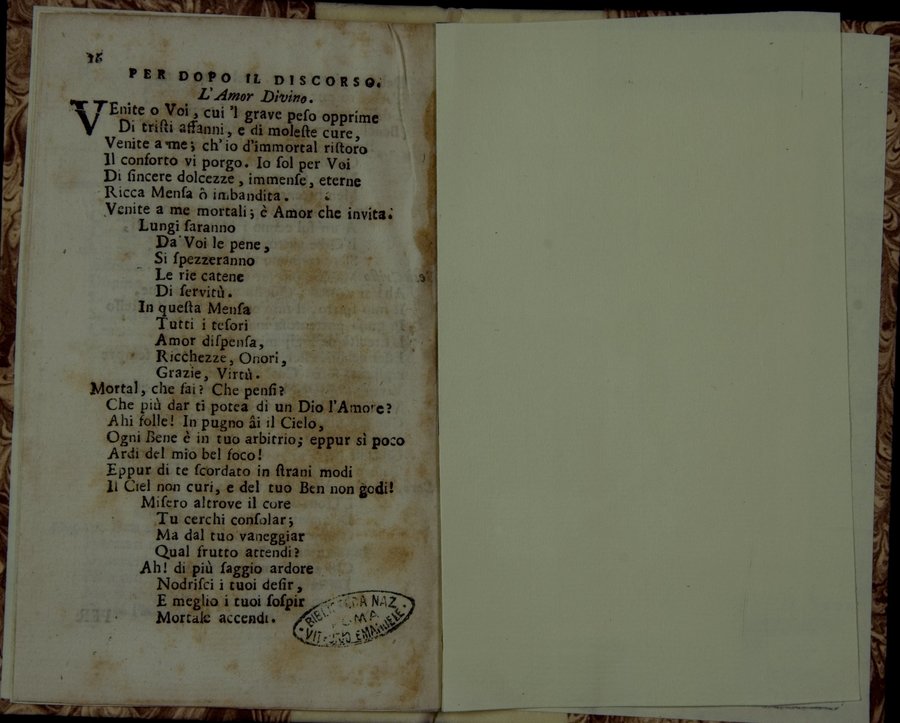 PER DOPO IL DISCORSO.
L'Amor Divino.
VEnite o Voi, cui 'l grave peſo opprime
Di triſti affanni, e di moleſte cure,
Venite a me; ch' io d'immortal riſtoro
Il conforto vi porgo. Io ſol per Voi
Di ſincere dolcezze, immenſe, eterne
Ricca Menſa ô imbandita.
Venite a me mortali; è Amor che invita.
Lungi ſaranno
Da Voi le pene,
Si ſpezzeranno
Le rie catene
Di ſervitù.
In queſta Menſa
Tutti i teſori
Amor diſpenſa,
Ricchezze, Onori,
Grazie, Virtù.
Mortal, che fai? Che penſi?
Che più dar ti potea di un Dio l'Amore?
Ahi folle! In pugno âi il Cielo,
Ogni Bene è in tuo arbitrio; eppur sì poco
Ardi del mio bel foco!
Eppur di te ſcordato in ſtrani modi
Il Ciel non curi, e del tuo Ben non godi!
Miſero altrove il core
Tu cerchi conſolar;
Ma dal tuo vaneggiar
Qual frutto attendi?
Ah! di più ſaggio ardore
Nodriſci i tuoi deſir,
E meglio i tuoi ſoſpir
Mortale accendi.
NAZ
VIT EMANUELE